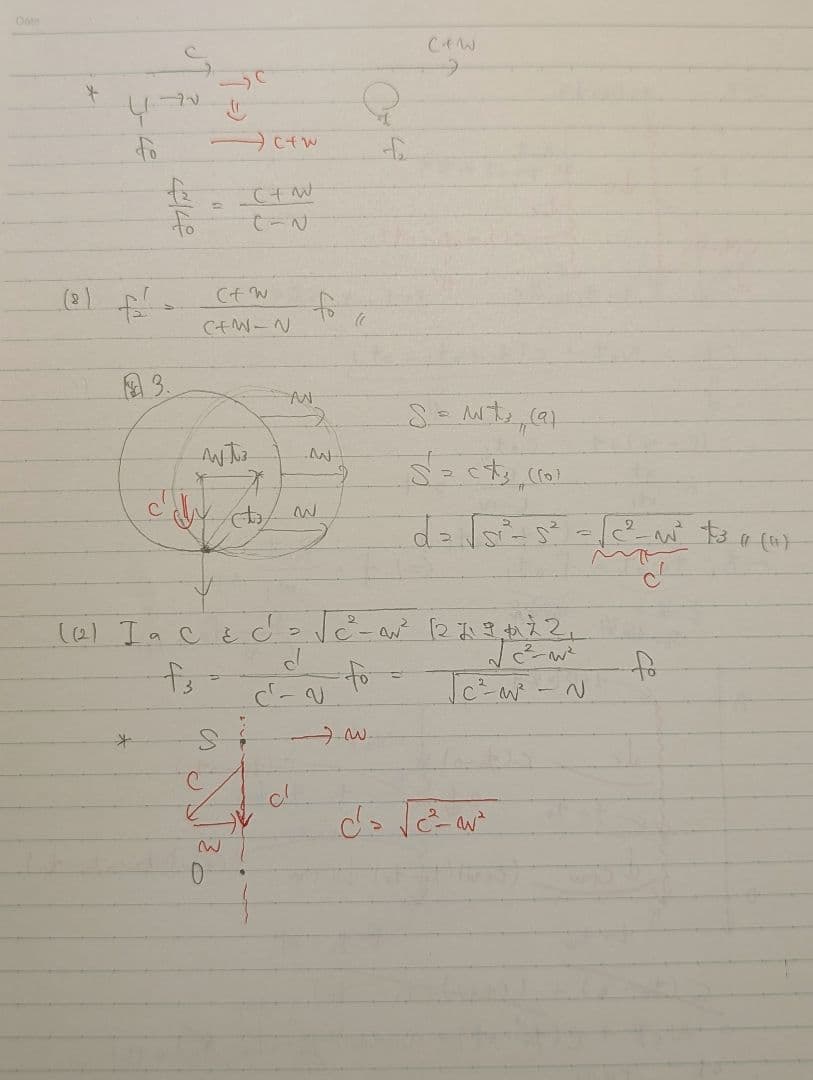 Date
C
C+W
* →v →C
f₀ → C+W f₂
f₂/f₀ = (C+W)/(C-v)
(8) f₂' = (C+W)/(C+W-v) f₀ 〃
図3.
w
wt₃ w
C' ct₃ w
S = wt₃ 〃 (9)
S' = ct₃ 〃 (10)
d = √(S'² - S²) = √(C² - w²) t₃ 〃 (11)
C'
(12) IのCをC' = √(C² - w²) におきかえて,
f₃ = C'/(C'-v) f₀ = √(C² - w²)/(√(C² - w²) - v) f₀
* S → w
C C'
C' = √(C² - w²)
w
O